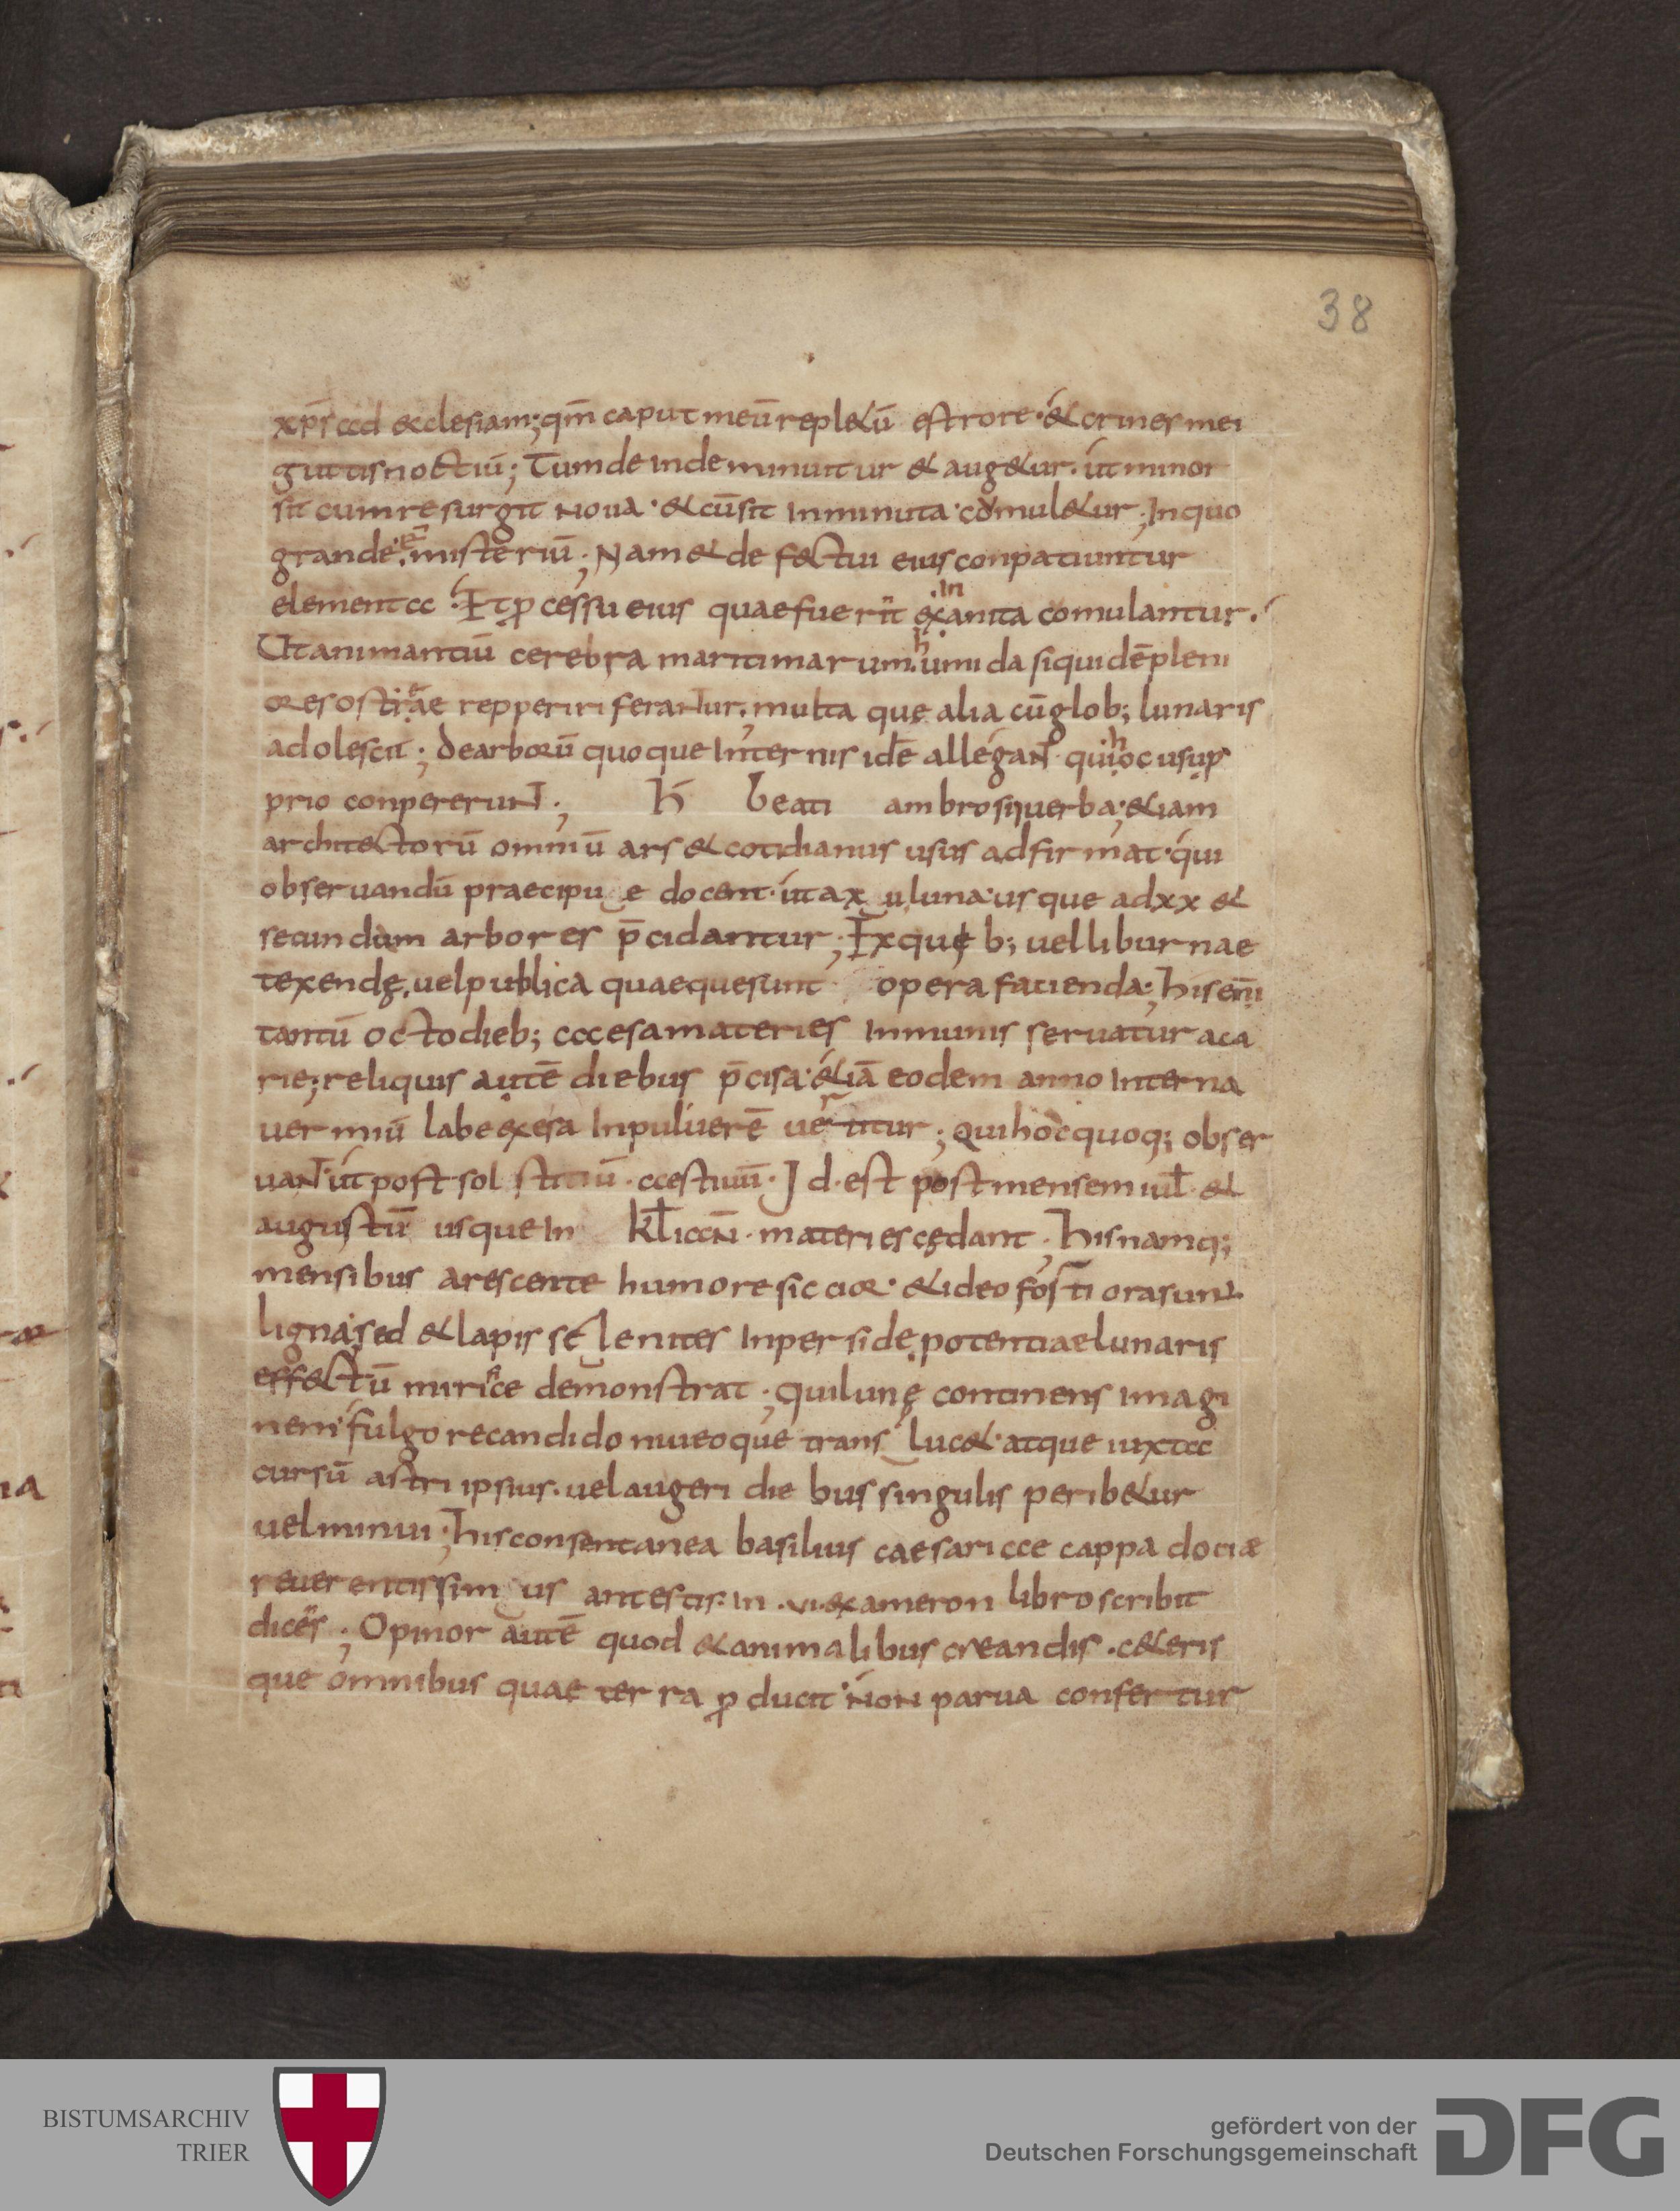 38
xp̄s ad ecclesiam; qm̄ caput meū repl&ū est rore · & crines mei
guttis noctiū; Tum deinde minuitur & aug&ur · ut minor
sit cum resurgit noua · & cū sit inminuta comul&ur; In quo
grande ē misteriū; Nam & defectui eius conpatiuntur
elementa · Et ꝓcessu eius quae fuerīt exinanita comulantur ·
Ut animantiū cerebra maritimarum humida siquidē pleni
ores ostreae repperiri ferantur; multa que alia cū glob; lunaris
adolescit; De arborū quoque internis idē allegant qui hoc usu ꝓ
prio conpererunt; H̄ beati ambrosii uerba; &iam
architectorū omniū ars & cotidianus usus adfirmat · qui
obseruandū praecipue docent · ut a xu luna · usque ad xx &
secundam arbores p̄cidantur; Ex queb; uel liburnae
texendę · uel publica quaeque sunt opera facienda; his enī
tantū octo dieb; caesa materies inmunis seruatur a ca
rie; reliquis autē diebus p̄cisa · &iā eodem anno interna
uermiū labe exesa in puluerē uertitur; Qui hoc quoq; obser
uant · ut post solstitiū · aestiuū · Id · est post mensem iul̄ · &
augustū usque in kl̄ ian̄ · materies cędant; His namq;
mensibus arescente humore siccior · & ideo fortiora sunt
ligna · sed & lapis selenites in perside potentiae lunaris
effectū mirifice demonstrat; qui lunę continens imagi
nem · fulgore candido niueoque transluc& · atque iuxta
cursū astri ipsius · uel augeri diebus singulis perib&ur
uel minui; His consentanea basilius caesariae cappadociæ
reuerentissimus antestis · in · ui · exameron libro scribit
dicēs; Opinor autē quod & animalibus creandis · c&eris
que omnibus quae terra ꝓducit · non parua confertur
BISTUMSARCHIV
TRIER
gefördert von der
Deutschen Forschungsgemeinschaft
DFG